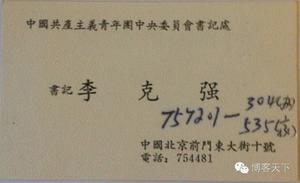 中國共產主義青年團中央委員會書記處
書記 李克强
757201—304(办)
535(宅)
中國北京前門東大街十號
電話：754481
博客天下